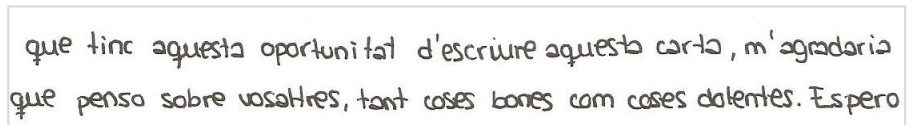 que tinc aquesta oportunitat d'escriure aquesta carta, m'agradaria
que penso sobre vosaltres, tant coses bones com coses dolentes. Espero